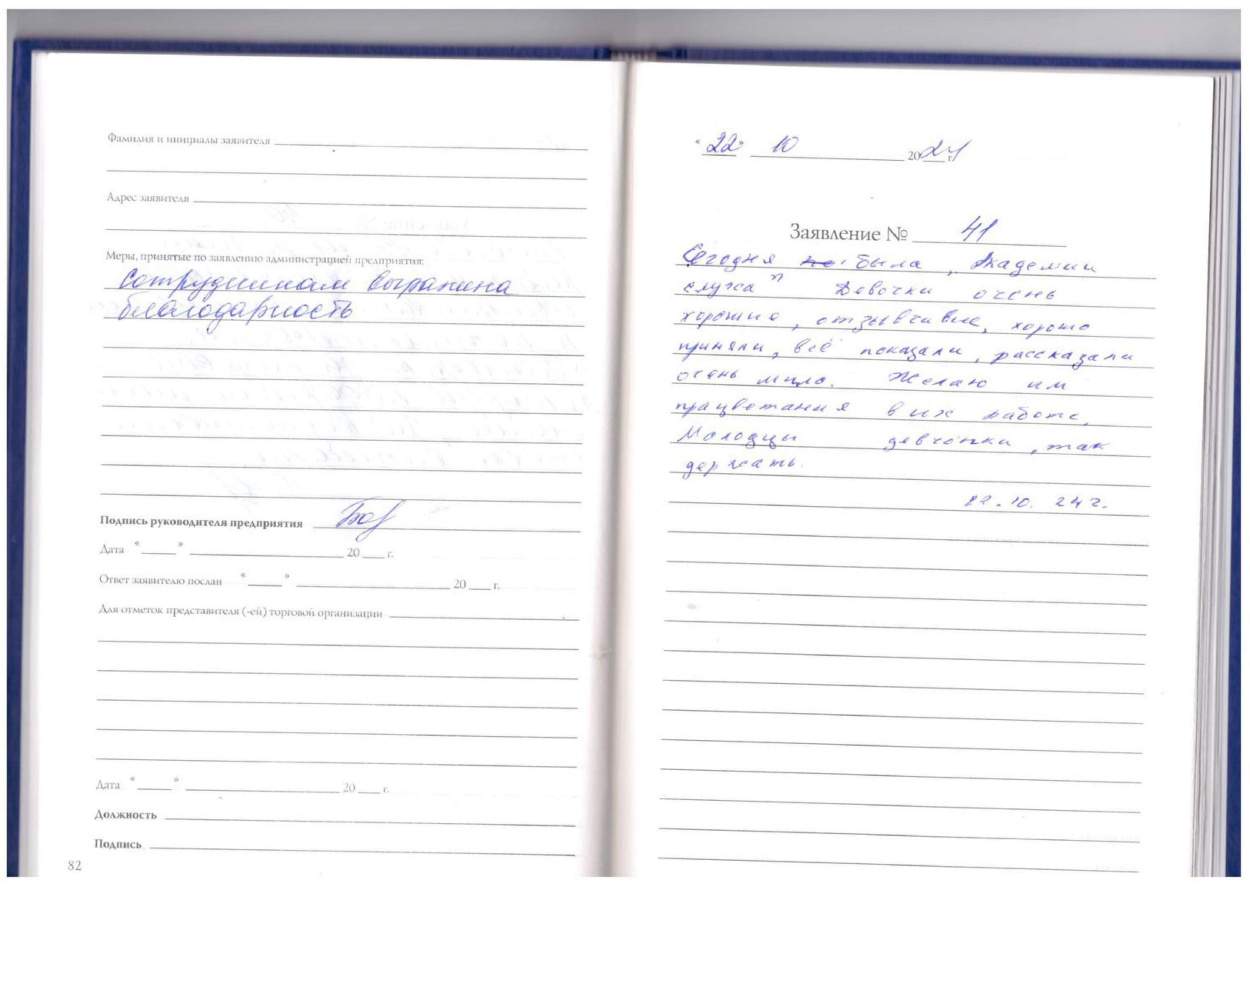 Фамилия и инициалы заявителя
Адрес заявителя
Меры, принятые по заявлению администрацией предприятия:
Сотрудникам выражена
благодарность
Подпись руководителя предприятия
Дата " " 20 г.
Ответ заявителю послан " " 20 г.
Для отметок представителя (-ей) торговой организации
Дата " " 20 г.
Должность
Подпись
82
"22" 10 2024 г.
Заявление № 41
Сегодня была "Академии
слуха" Девочки очень
хорошие, отзывчивые, хорошо
приняли, всё показали, рассказали
очень мило. Желаю им
працветания в их работе.
Молодцы девчонки, так
держать.
22.10. 24 г.